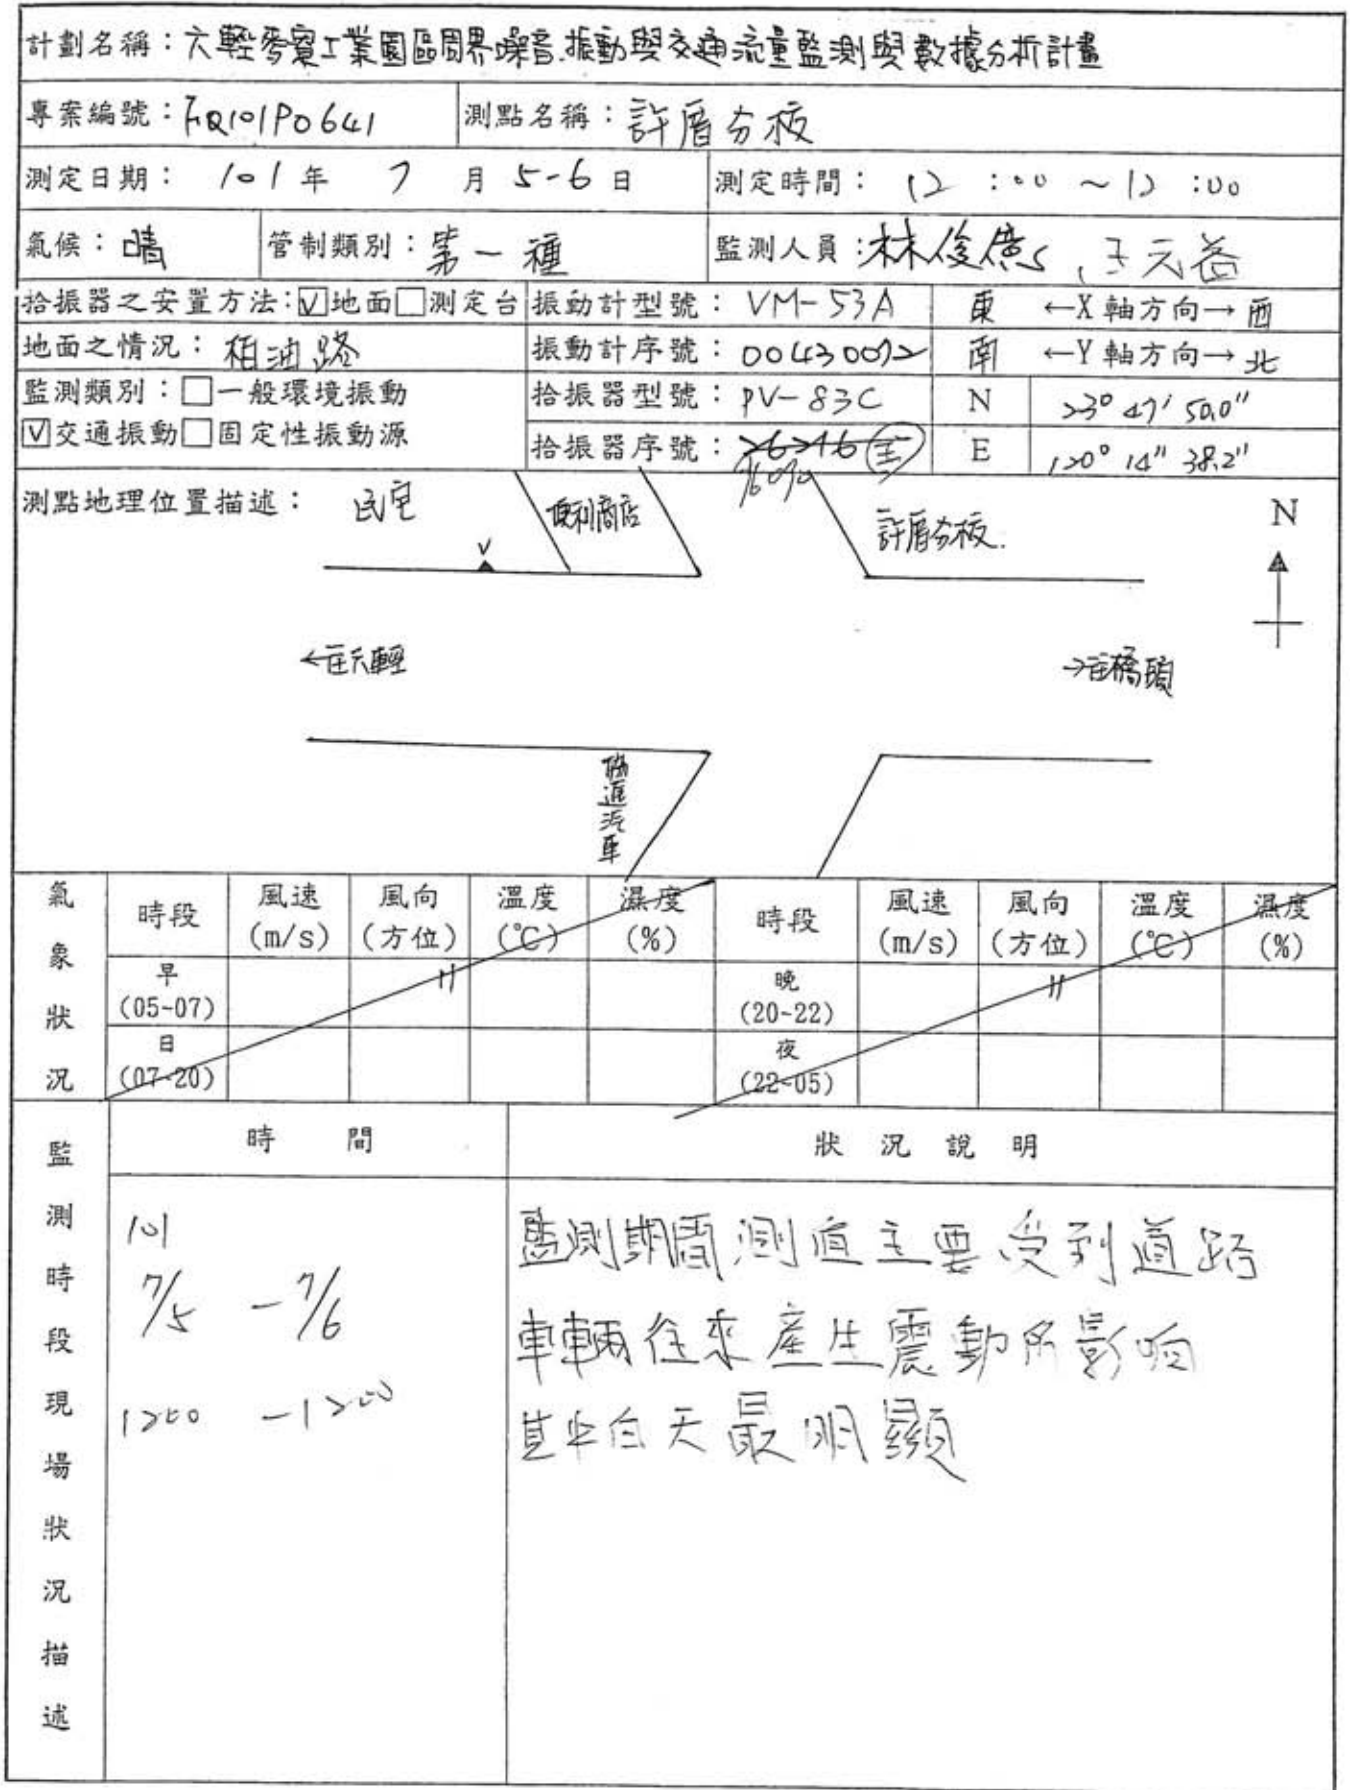 計劃名稱：六輕麥寮工業園區周界噪音.振動與交通流量監測與數據分析計畫
專案編號：FQ101P0641 測點名稱：許厝分校
測定日期： 101 年 7 月 5-6 日 測定時間： 12 :00 ~12 :00
氣候：晴 管制類別：第一種 監測人員：林俊億、王元益
拾振器之安置方法：☑地面□測定台 振動計型號：VM-53A 東 ←X軸方向→ 西
地面之情況：柏油路 振動計序號：00430072 南 ←Y軸方向→ 北
監測類別：□一般環境振動 拾振器型號：PV-83C N 23° 47' 50.0"
☑交通振動□固定性振動源 拾振器序號： E 120° 14" 38.2"
測點地理位置描述： 民宅 便利商店 許厝分校. N
V
←往六輕 →往橋頭
協進汽車
氣象狀況 時段 風速(m/s) 風向(方位) 溫度(℃) 濕度(%) 時段 風速(m/s) 風向(方位) 溫度(℃) 濕度(%)
早(05-07) 晚(20-22)
日(07-20) 夜(22-05)
監測時段現場狀況描述 時 間 狀 況 說 明
101 監測期間測值主要受到道路
7/5 - 7/6 車輛往來產生震動所影响
1200 - 1200 其中白天最明顯